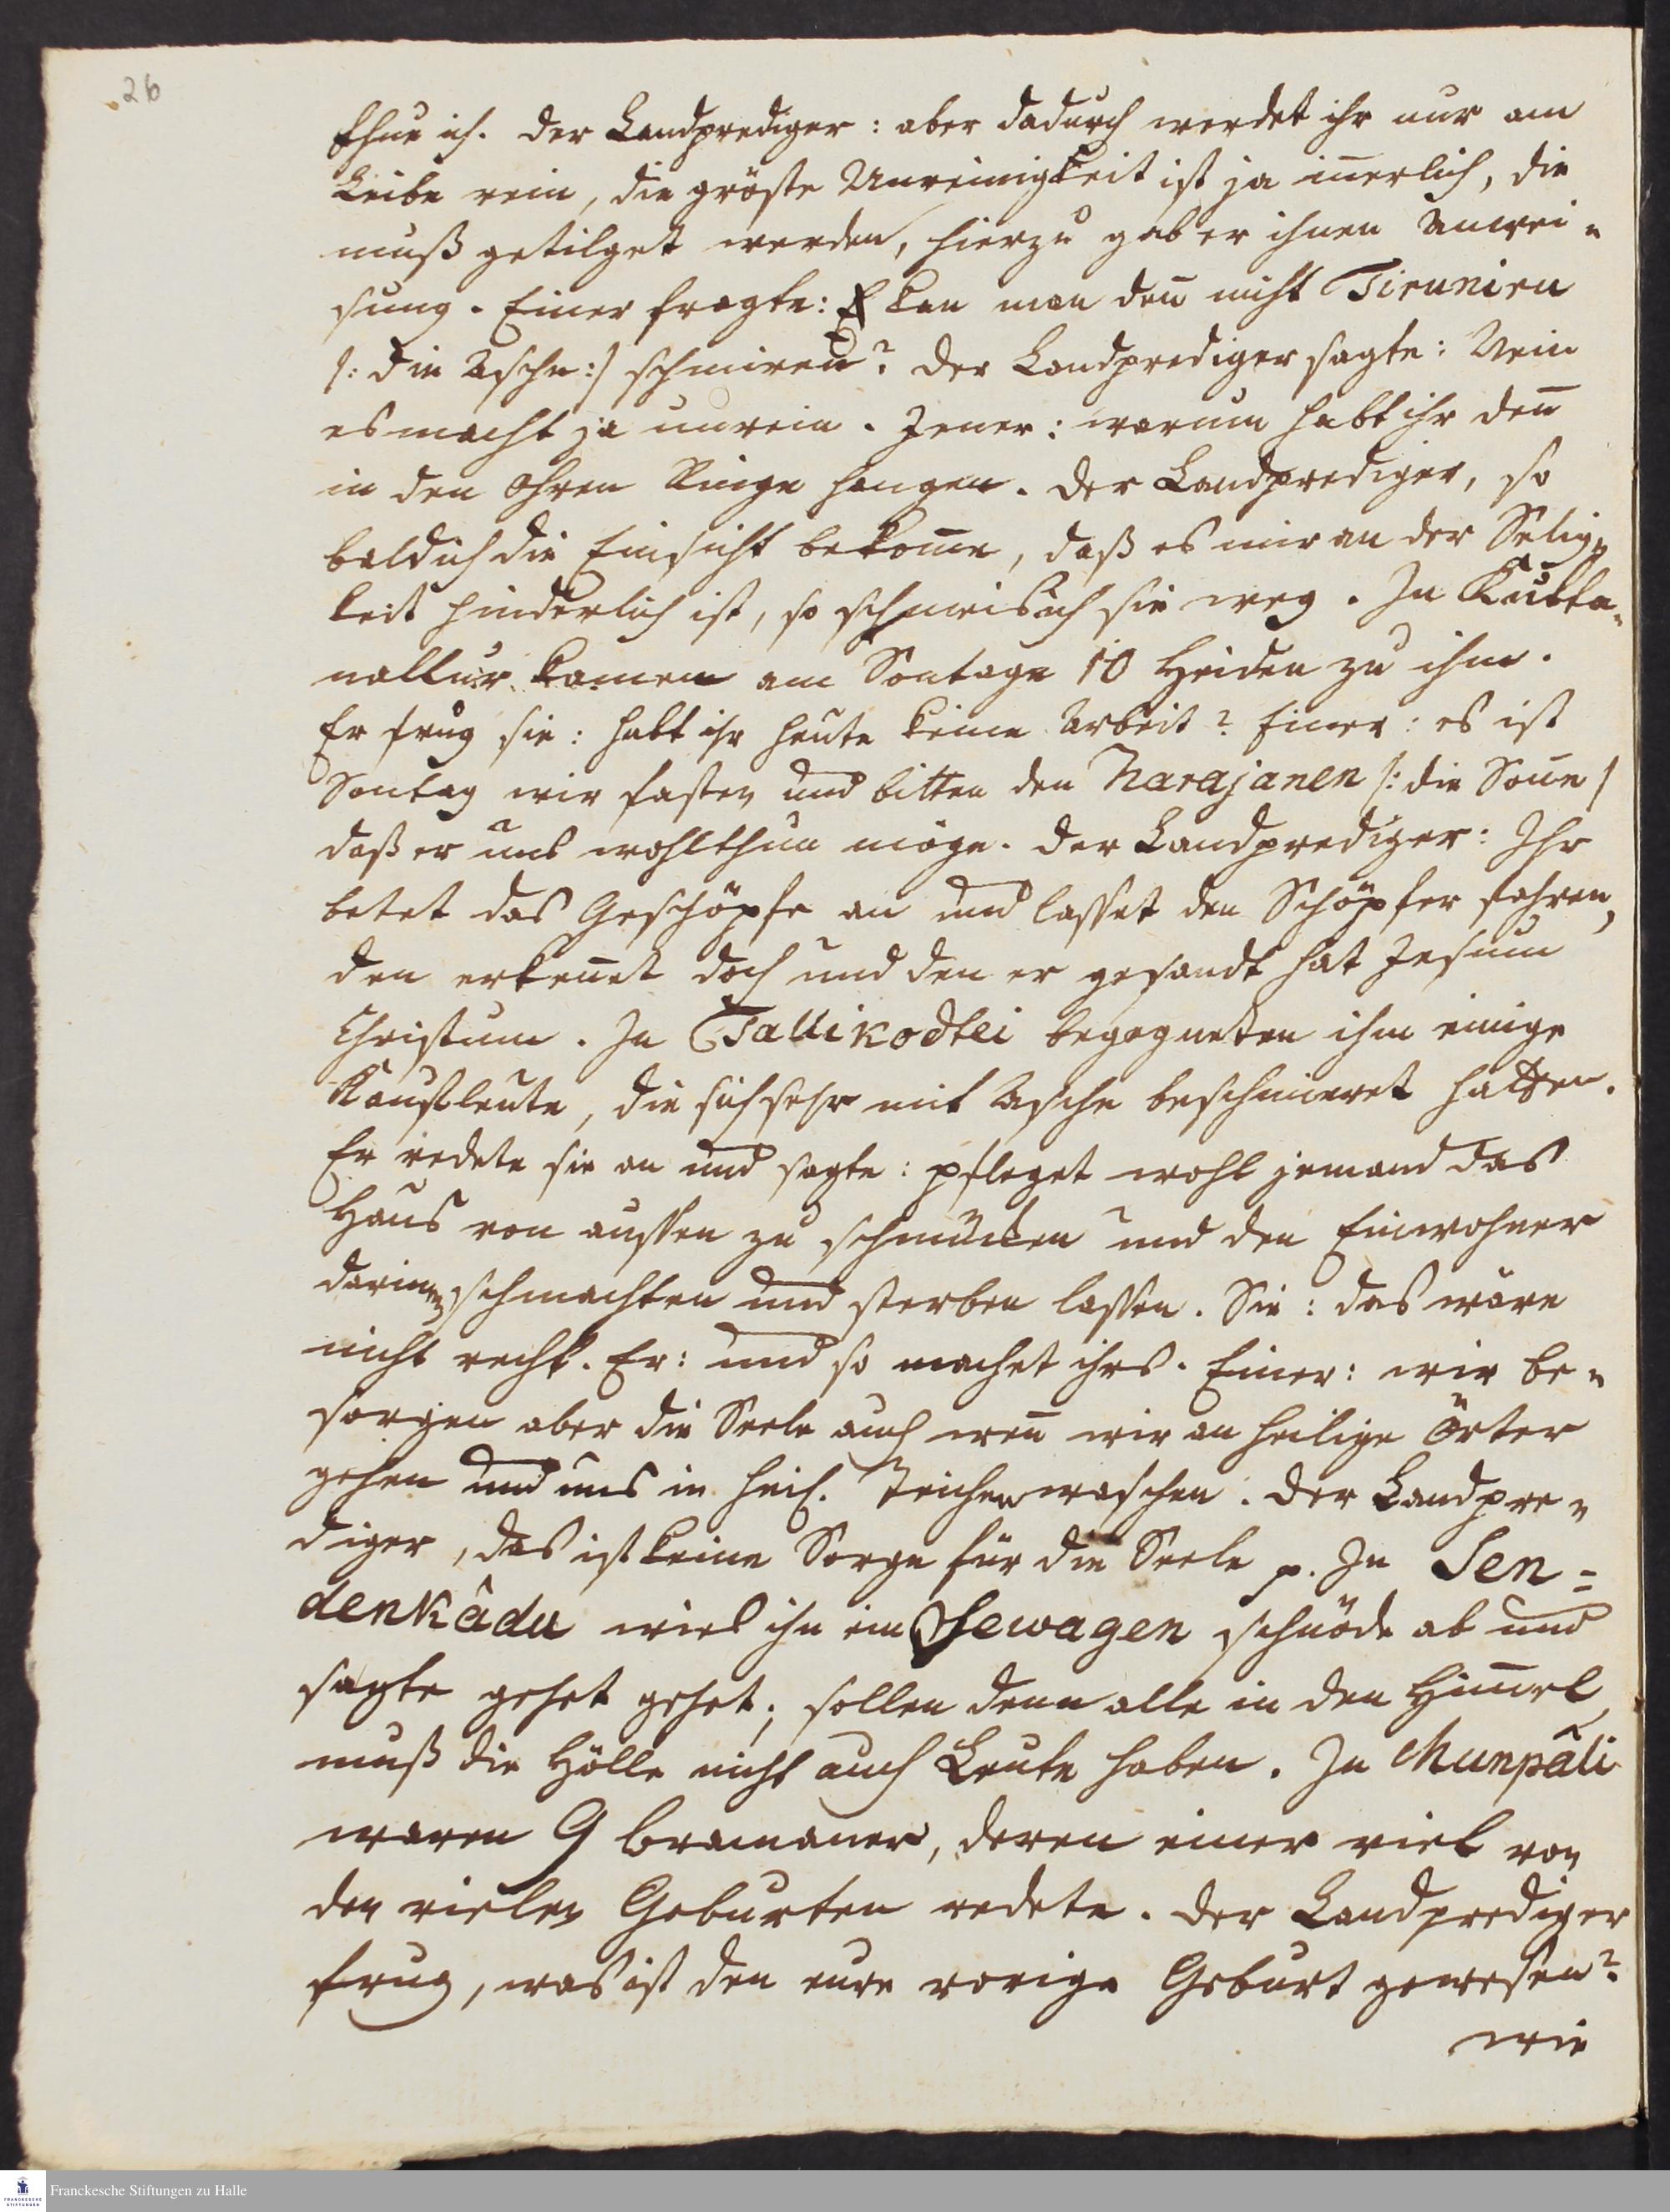 26
thue ich. Der Landprediger: aber dadurch werdet ihr nur am
Leibe rein, die gröste Unreinigkeit ist ja in̄erlich, die
muß getilget werden, hierzu gab er ihnen Anwei-
sung. Einer fragte: kan man den̄ nicht Tiruniru
/: die Asche :/ schmiren? Der Landprediger sagte: Nein
es macht ja unrein. Jener: warum habt ihr den̄
in den Ohren Ringe hangen. Der Landprediger, so
bald ich die Einsicht bekom̄e, daß es mir an der Selig-
keit hinderlich ist, so schmeis ich sie weg. In Kutta-
nallur kamen am Sontage 10 Heiden zu ihm.
Er frug sie: habt ihr heute keine Arbeit? Einer: es ist
Sontag wir fasten und bitten den Narajanen /: die Son̄e /
daß er uns wohlthun möge. Der Landprediger: Ihr
betet das Geschöpfe an und lasset den Schöpfer fahren,
den erken̄et doch und den er gesandt hat Jesum
Christum. In Tallikodtei begegneten ihm einige
Kaufleute, die sich sehr mit Asche beschmieret hatten.
Er redete sie an und sagte: pfleget wohl jemand das
Haus von aussen zu schmücken und den Einwohner
darinnen schmachten und sterben lassen. Sie: das wäre
nicht recht. Er: und so machet ihrs. Einer: wir be-
sorgen aber die Seele auch wen̄ wir an heilige Örter
gehen und uns in heil. Teichen waschen. Der Landpre-
diger, das ist keine Sorge für die Seele p. In Sen-
denkâdu wies ihn ein Schewagen schnöde ab und
sagte gehet gehet; sollen denn alle in den Him̄el,
muß die Hölle nicht auch Leute haben. In Munpâli
waren 9 bramaner, deren einer viel von
den vielen Geburten redete. Der Landprediger
frug, was ist den eure vorige Geburt gewesen?
wie
Franckesche Stiftungen zu Halle